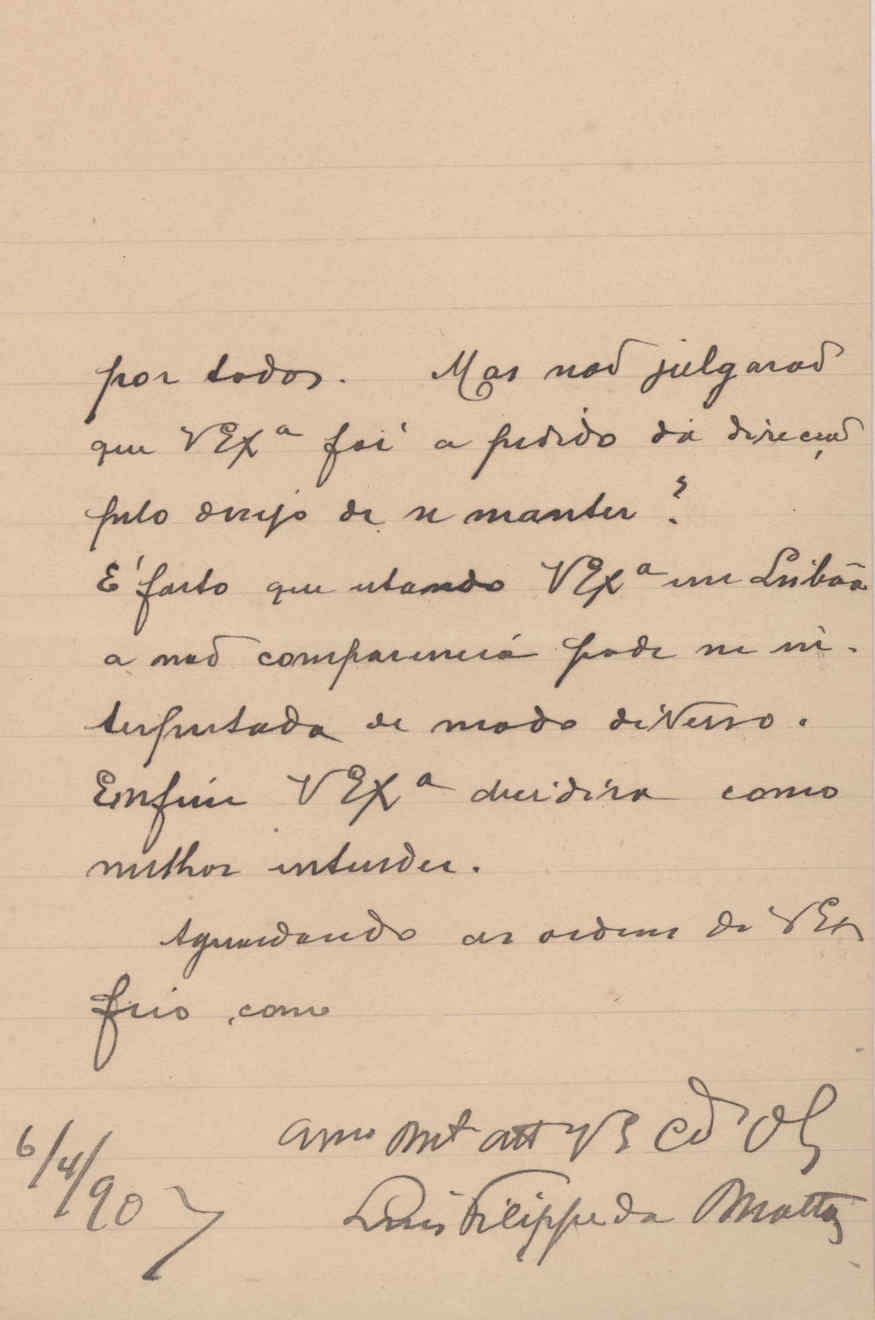 por todos. Mas não julgarão
que V Exª foi a pedido da direcção
pelo desejo de se manter?
É facto que estando V Exª em Lisbôa
a não comparencia pode ser in-
terpretada de modo diverso.
Emfim V Exª decidira como
melhor entender.
Aguardando as ordens de V Ex
fico, como
Amº Mtº Attº V
Luis Filippe da Matta
6/4/907